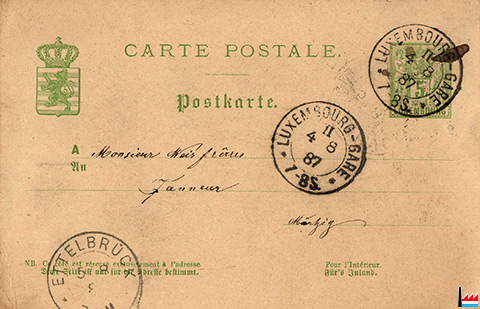 CARTE POSTALE.
Postkarte.
LUXEMBOURG-GARE
II
4 8
87
7-8S.
LUXEMBOURG-GARE
II
4 8
87
7-8S.
A
An
Monsieur
Tanneur
NB. Ce côté est réservé exclusivement à l'adresse.
Diese Seite ist nur für die Adresse bestimmt.
Pour l'Intérieur.
Für's Inland.
ETTELBRÜCK